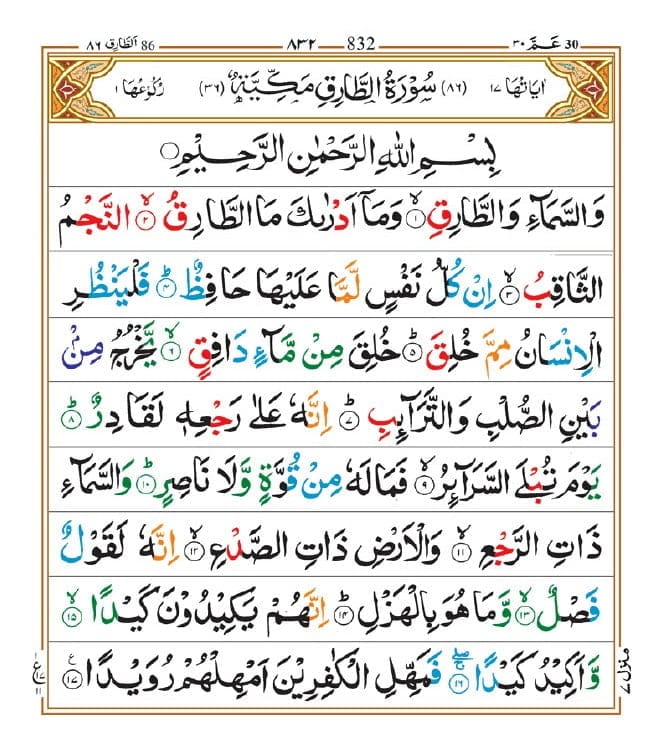 30 عَمَّ ٣٠
832 ٨٣٢
86 اَلطَّارِق ٨٦
اٰيَاتُهَا ١٧ (٨٦) سُوْرَةُ الطَّارِقِ مَكِّيَّةٌ (٣٦) رُكُوْعُهَا ١
بِسْمِ اللّٰهِ الرَّحْمٰنِ الرَّحِيْمِ
وَالسَّمَآءِ وَالطَّارِقِ ۙ‏﴿١﴾ وَمَاۤ اَدْرٰىكَ مَا الطَّارِقُ ۙ‏﴿٢﴾ النَّجْمُ
الثَّاقِبُ ۙ‏﴿٣﴾ اِنْ كُلُّ نَفْسٍ لَّمَّا عَلَيْهَا حَافِظٌ ؕ‏﴿٤﴾ فَلْيَنْظُرِ
الْاِنْسَانُ مِمَّ خُلِقَ ؕ‏﴿٥﴾ خُلِقَ مِنْ مَّآءٍ دَافِقٍ ۙ‏﴿٦﴾ يَّخْرُجُ مِنْۢ
بَيْنِ الصُّلْبِ وَالتَّرَآئِبِ ؕ‏﴿٧﴾ اِنَّهٗ عَلٰى رَجْعِهٖ لَقَادِرٌ ؕ‏﴿٨﴾
يَوْمَ تُبْلَى السَّرَآئِرُ ۙ‏﴿٩﴾ فَمَا لَهٗ مِنْ قُوَّةٍ وَّلَا نَاصِرٍ ؕ‏﴿١٠﴾ وَالسَّمَآءِ
ذَاتِ الرَّجْعِ ۙ‏﴿١١﴾ وَالْاَرْضِ ذَاتِ الصَّدْعِ ۙ‏﴿١٢﴾ اِنَّهٗ لَقَوْلٌ
فَصْلٌ ۙ‏﴿١٣﴾ وَّمَا هُوَ بِالْهَزْلِ ؕ‏﴿١٤﴾ اِنَّهُمْ يَكِيْدُوْنَ كَيْدًا ۙ‏﴿١٥﴾
وَّاَكِيْدُ كَيْدًا ۖۚ‏﴿١٦﴾ فَمَهِّلِ الْكٰفِرِيْنَ اَمْهِلْهُمْ رُوَيْدًا ﴿١٧﴾
منزل ٧